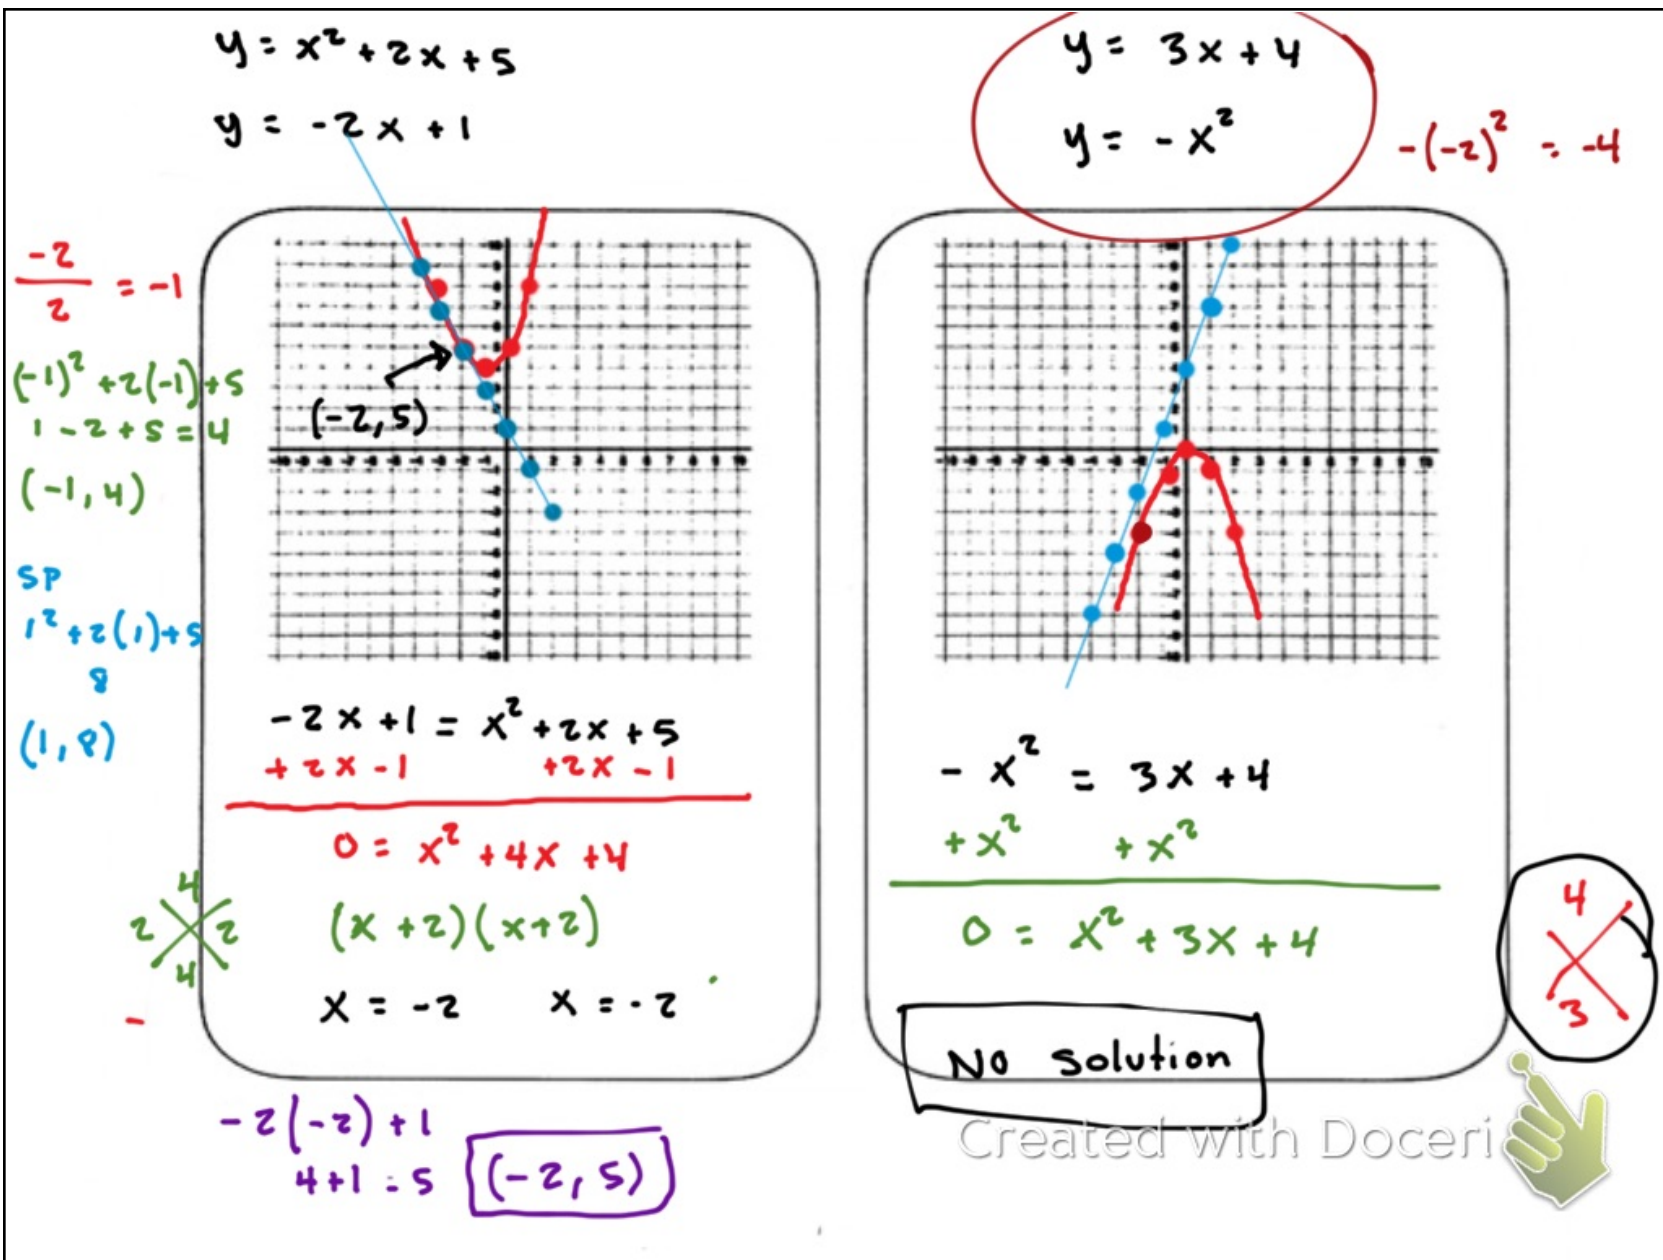 y = x² + 2x + 5
y = -2x + 1
-2
2
= -1
(-1)² + 2(-1) + 5
1 - 2 + 5 = 4
(-1, 4)
SP
1² + 2(1) + 5
8
(1, 8)
(-2, 5)
-2x + 1 = x² + 2x + 5
+ 2x - 1 +2x - 1
0 = x² + 4x + 4
4
2 2
4
(x + 2)(x + 2)
x = -2 x = -2
-
-2(-2) + 1
4 + 1 = 5
(-2, 5)
y = 3x + 4
y = -x²
-(-2)² = -4
-x² = 3x + 4
+ x² + x²
0 = x² + 3x + 4
4
3
No Solution
Created with Doceri